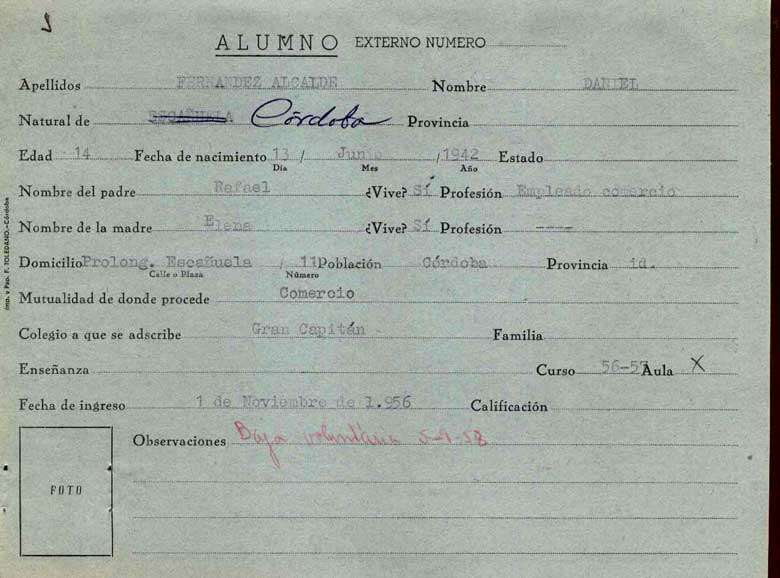 ALUMNO EXTERNO NUMERO
Apellidos FERNANDEZ ALCALDE Nombre DANIEL
Natural de ESCAÑUELA Córdoba Provincia
Edad 14 Fecha de nacimiento 13 / Junio /1942 Estado
Día Mes Año
Nombre del padre Rafael ¿Vive? Sí Profesión Empleado comercio
Nombre de la madre Elena ¿Vive? Sí Profesión ----
Domicilio Prolong. Escañuela / 11 Población Córdoba Provincia id.
Calle o Plaza Número
Mutualidad de donde procede Comercio
Colegio a que se adscribe Gran Capitán - Familia
Enseñanza Curso 56-57 Aula X
Fecha de ingreso 1 de Noviembre de 1.956 Calificación
Observaciones Baja voluntaria 5-1-58
FOTO
Imp. y Pap. F. TOLEDANO.-Córdoba